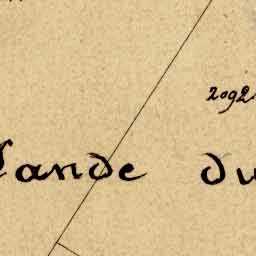 2092
Lande du